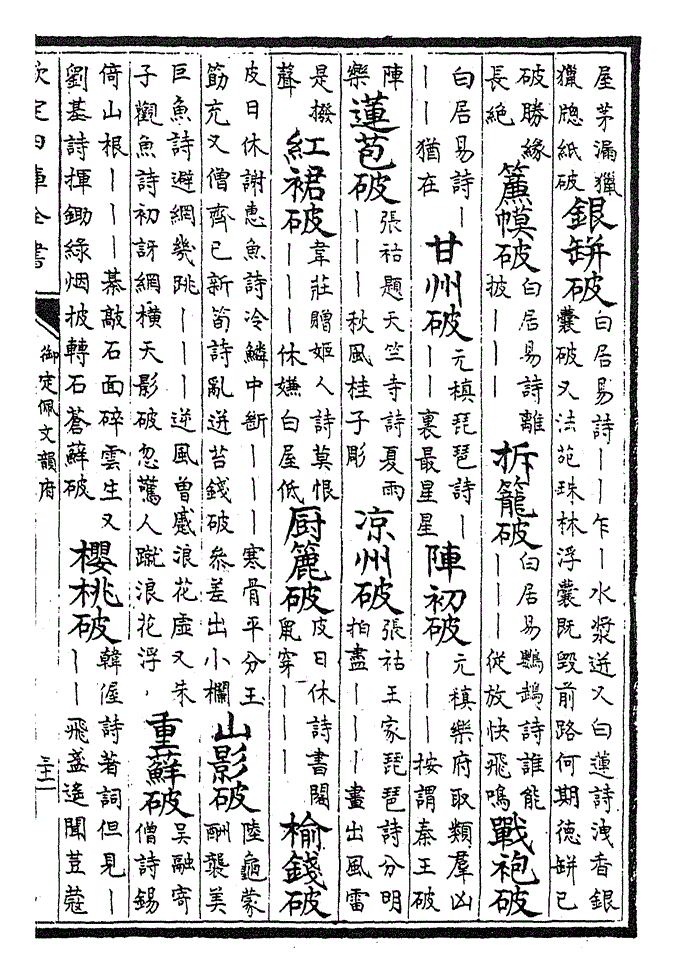 屋茅漏獵
獵牕紙破
銀缾破
白居易詩丨丨乍丨水漿迸又白蓮詩洩香銀
囊破又法苑珠林浮囊既毀前路何期德缾已
破勝緣
長絶
簾幙破
白居易詩離
披丨丨丨
拆籠破
白居易鸚鵡詩誰能
丨丨丨從放快飛鳴
戰袍破
白居易詩丨
丨丨猶在
甘州破
元稹琵琶詩丨
丨丨裏最星星
陣初破
元稹樂府取類羣凶
丨丨丨按謂秦王破
陣
樂
蓮苞破
張祜題天竺寺詩夏雨
丨丨丨秋風桂子彫
凉州破
張祜王家琵琶詩分明
拍盡丨丨丨畫出風雷
是撥
聲
紅裙破
韋莊贈姬人詩莫恨
丨丨丨休嫌白屋低
厨簏破
皮日休詩書閣
鼠穿丨丨丨
榆錢破
皮日休謝惠魚詩冷鱗中斷丨丨丨寒骨平分玉
筯充又僧齊已新筍詩亂迸苔錢破參差出小欄
山影破
陸龜蒙
酬襲美
巨魚詩避網幾跳丨丨丨逆風曾蹙浪花虛又朱
子觀魚詩初訝網横天影破忽驚人蹴浪花浮
重蘚破
吳融寄
僧詩錫
倚山根丨丨丨碁敲石面碎雲生又
劉基詩揮鋤綠烟披轉石蒼蘚破
櫻桃破
韓偓詩著詞但見丨
丨丨飛盞遙聞荳蔻
欽定四庫全書
御定佩文韻府